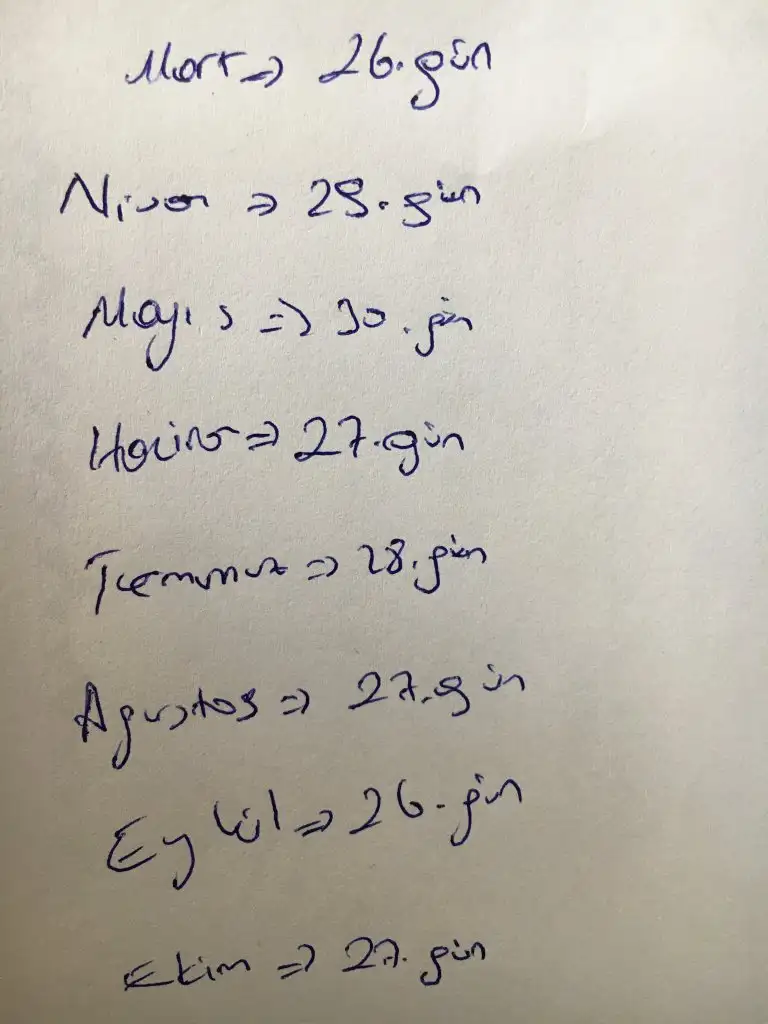 Mart => 26.gün
Nisan => 29.gün
Mayıs => 30.gün
Haziran => 27.gün
Temmuz => 28.gün
Ağustos => 27.gün
Eylül => 26.gün
Ekim => 27.gün